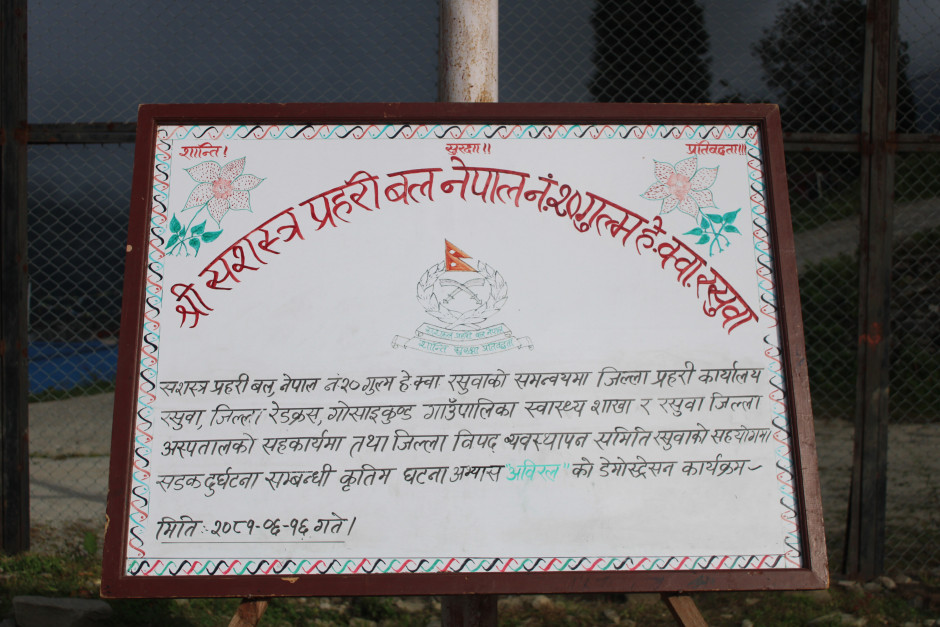 शान्ति! सुरक्षा!! प्रतिवद्धता!!!
श्री सशस्त्र प्रहरी बल नेपाल नं.२० गुल्म हे.क्वा. रसुवा
सशस्त्र प्रहरी बल नेपाल
शान्ति सुरक्षा प्रतिवद्धता
सशस्त्र प्रहरी बल, नेपाल नं.२० गुल्म हे.क्वा रसुवाको समन्वयमा जिल्ला प्रहरी कार्यालय
रसुवा, जिल्ला रेडक्रस, गोसाइकुण्ड गाउँपालिका स्वास्थ्य शाखा र रसुवा जिल्ला
अस्पतालको सहकार्यमा तथा जिल्ला विपद व्यवस्थापन समिति रसुवाको सहयोगमा
सडक दुर्घटना सम्बन्धी कृतिम घटना अभ्यास "अविरल" को डेमोस्ट्रेसन कार्यक्रम~
मिति:- २०८१-०६-१६ गते।